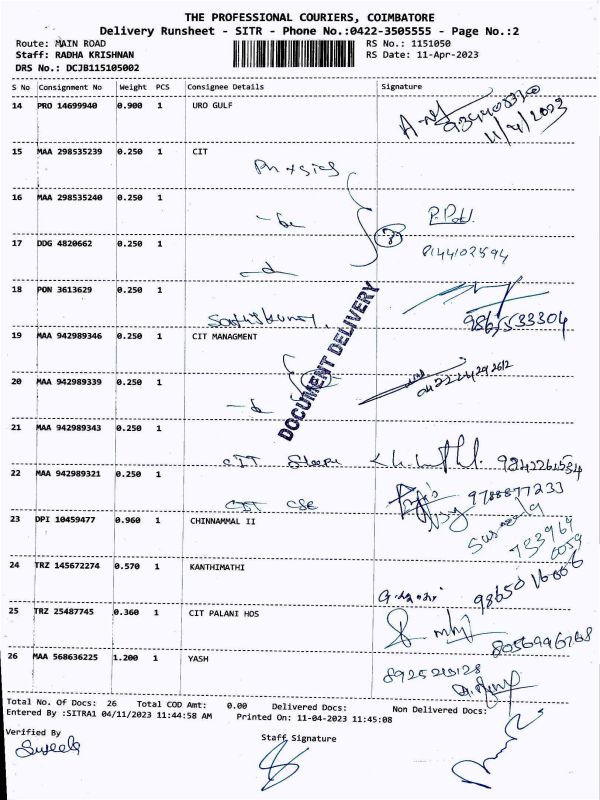 THE PROFESSIONAL COURIERS, COIMBATORE
Delivery Runsheet - SITR - Phone No.:0422-3505555 - Page No.:2
Route: MAIN ROAD RS No.: 1151050
Staff: RADHA KRISHNAN RS Date: 11-Apr-2023
DRS No.: DCJB115105002
S No Consignment No Weight PCS Consignee Details Signature
14 PRO 14699940 0.900 1 URO GULF
11/4/2023
15 MAA 298535239 0.250 1 CIT
Physics
16 MAA 298535240 0.250 1
17 DDG 4820662 0.250 1
8144102594
18 PON 3613629 0.250 1
9865533304
19 MAA 942989346 0.250 1 CIT MANAGMENT
DOCUMENT DELIVERY
20 MAA 942989339 0.250 1
21 MAA 942989343 0.250 1
CIT
22 MAA 942989321 0.250 1
CIT CSE 9788877233
23 DPI 10459477 0.960 1 CHINNAMMAL II
24 TRZ 145672274 0.570 1 KANTHIMATHI
9865016006
25 TRZ 25487745 0.360 1 CIT PALANI HOS
8056996768
26 MAA 568636225 1.200 1 YASH
Total No. Of Docs: 26 Total COD Amt: 0.00 Delivered Docs: Non Delivered Docs:
Entered By :SITRA1 04/11/2023 11:44:58 AM Printed On: 11-04-2023 11:45:08
Verified By Staff Signature